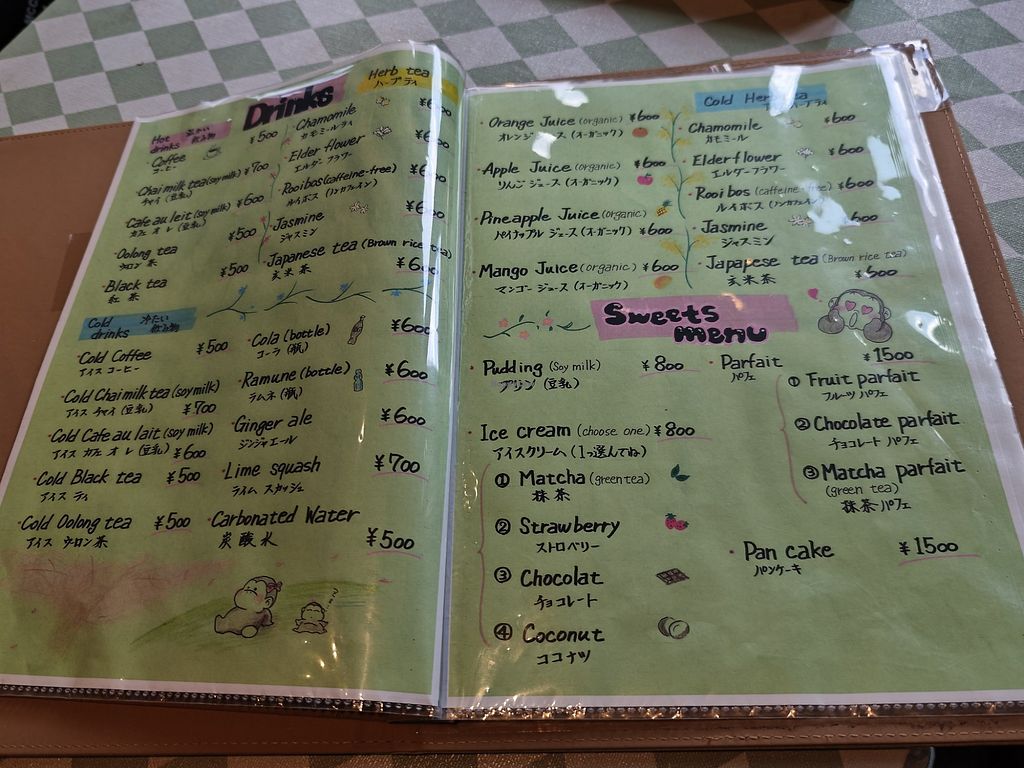 Drinks
Hot drinks
温かい飲み物
Coffee ¥500
コーヒー
Chai milk tea (soy milk) ¥700
チャイ (豆乳)
Cafe au leit (soy milk) ¥600
カフェ オ レ (豆乳)
Oolong tea ¥500
ウーロン 茶
Black tea ¥500
紅 茶
Herb tea
ハーブティ
・Chamomile ¥600
カモミールティ
・Elder flower
エルダー フラワー
・Rooibos (caffeine-free)
ルイボス (ノンカフェイン)
・Jasmine
ジャスミン
・Japanese tea (Brown rice tea)
玄米茶 ¥600
Cold drinks
冷たい飲み物
・Cold Coffee ¥500
アイス コーヒー
・Cold Chai milk tea (soy milk)
アイス チャイ (豆乳) ¥700
・Cold Cafe au lait (soy milk)
アイス カフェ オ レ (豆乳) ¥600
・Cold Black tea ¥500
アイス ティ
・Cold Oolong tea ¥500
アイス ウーロン茶
・Cola (bottle) ¥600
コーラ (瓶)
・Ramune (bottle) ¥600
ラムネ (瓶)
・Ginger ale ¥600
ジンジャエール
・Lime squash ¥700
ライム スカッシュ
・Carbonated Water
炭酸水 ¥500
・Orange Juice (organic) ¥600
オレンジ ジュース (オーガニック)
・Apple Juice (organic) ¥600
りんご ジュース (オーガニック)
・Pineapple Juice (organic)
パイナップル ジュース (オーガニック) ¥600
・Mango Juice (organic) ¥600
マンゴー ジュース (オーガニック)
Cold Her
・Chamomile ¥600
カモミール
・Elderflower ¥600
エルダーフラワー
・Rooibos (caffeine-free) ¥600
ルイボス (ノンカフェイン)
・Jasmine
ジャスミン
・Japapese tea (Brown rice tea)
玄米茶
Sweets menu
・Pudding (Soy milk) ¥800
プリン (豆乳)
・Ice cream (choose one) ¥800
アイスクリーム (1つ選んでね)
① Matcha (green tea)
抹茶
② Strawberry
ストロベリー
③ Chocolat
チョコレート
④ Coconut
ココナツ
・Parfait ¥1500
パフェ
① Fruit parfait
フルーツ パフェ
② Chocolate parfait
チョコレート パフェ
③ Matcha parfait
(green tea)
抹茶 パフェ
・Pan cake ¥1500
パンケーキ